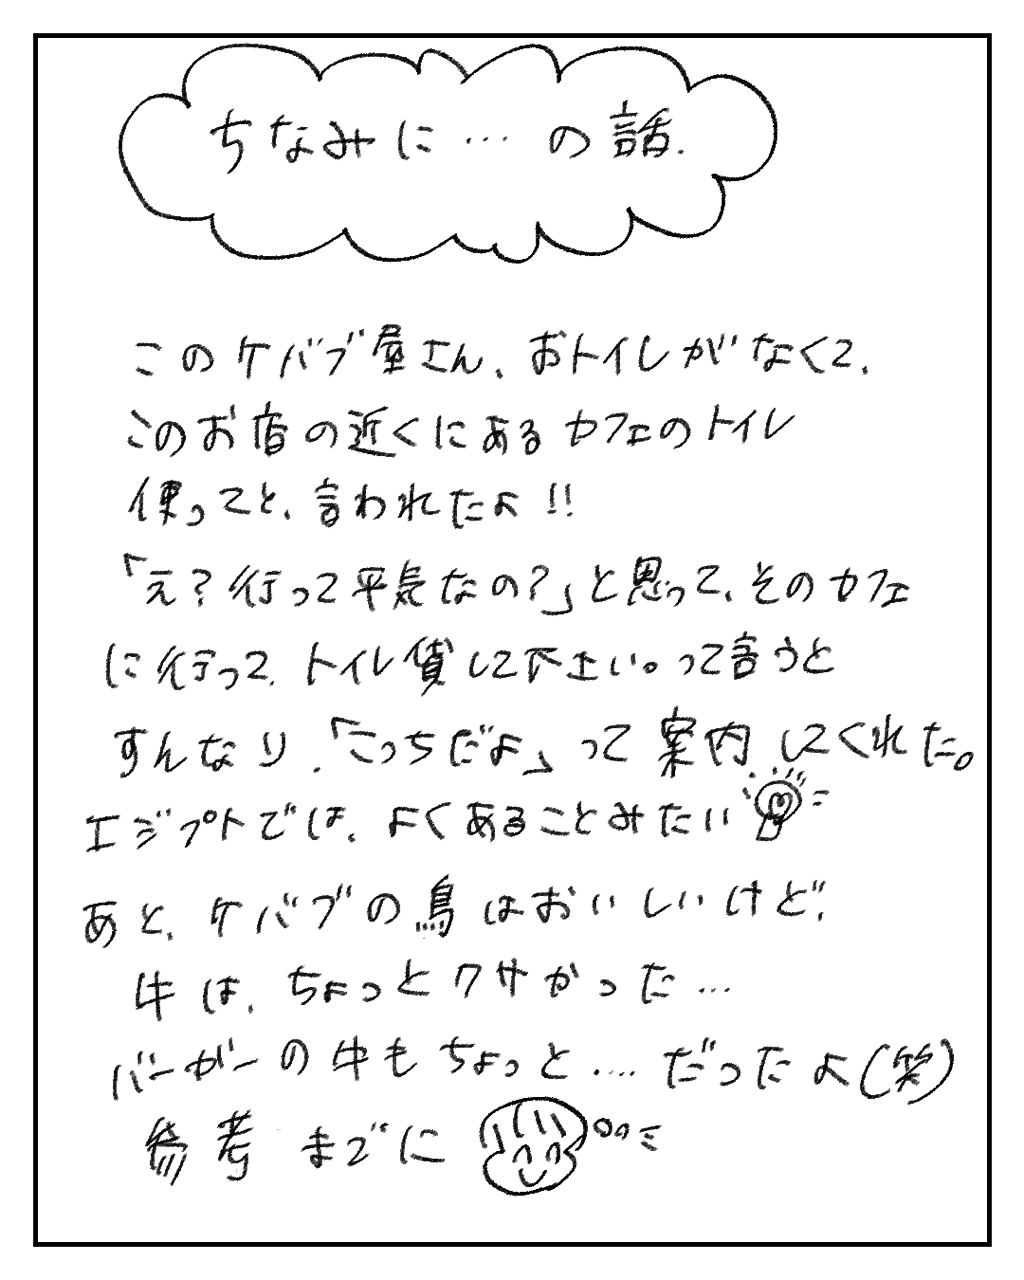 ちなみに…の話.
このケバブ屋さん、おトイレがなくて、
このお店の近くにあるカフェのトイレ
使ってと、言われたよ!!
「え?行って平気なの?」と思って、そのカフェ
に行って、トイレ貸して下さい。って言うと
すんなり、「こっちだよ」って案内してくれた。
エジプトでは、よくあることみたい
あと、ケバブの鳥はおいしいけど、
牛は、ちょっとクサかった…
バーガーの牛もちょっと….だったよ(笑)
参考までに